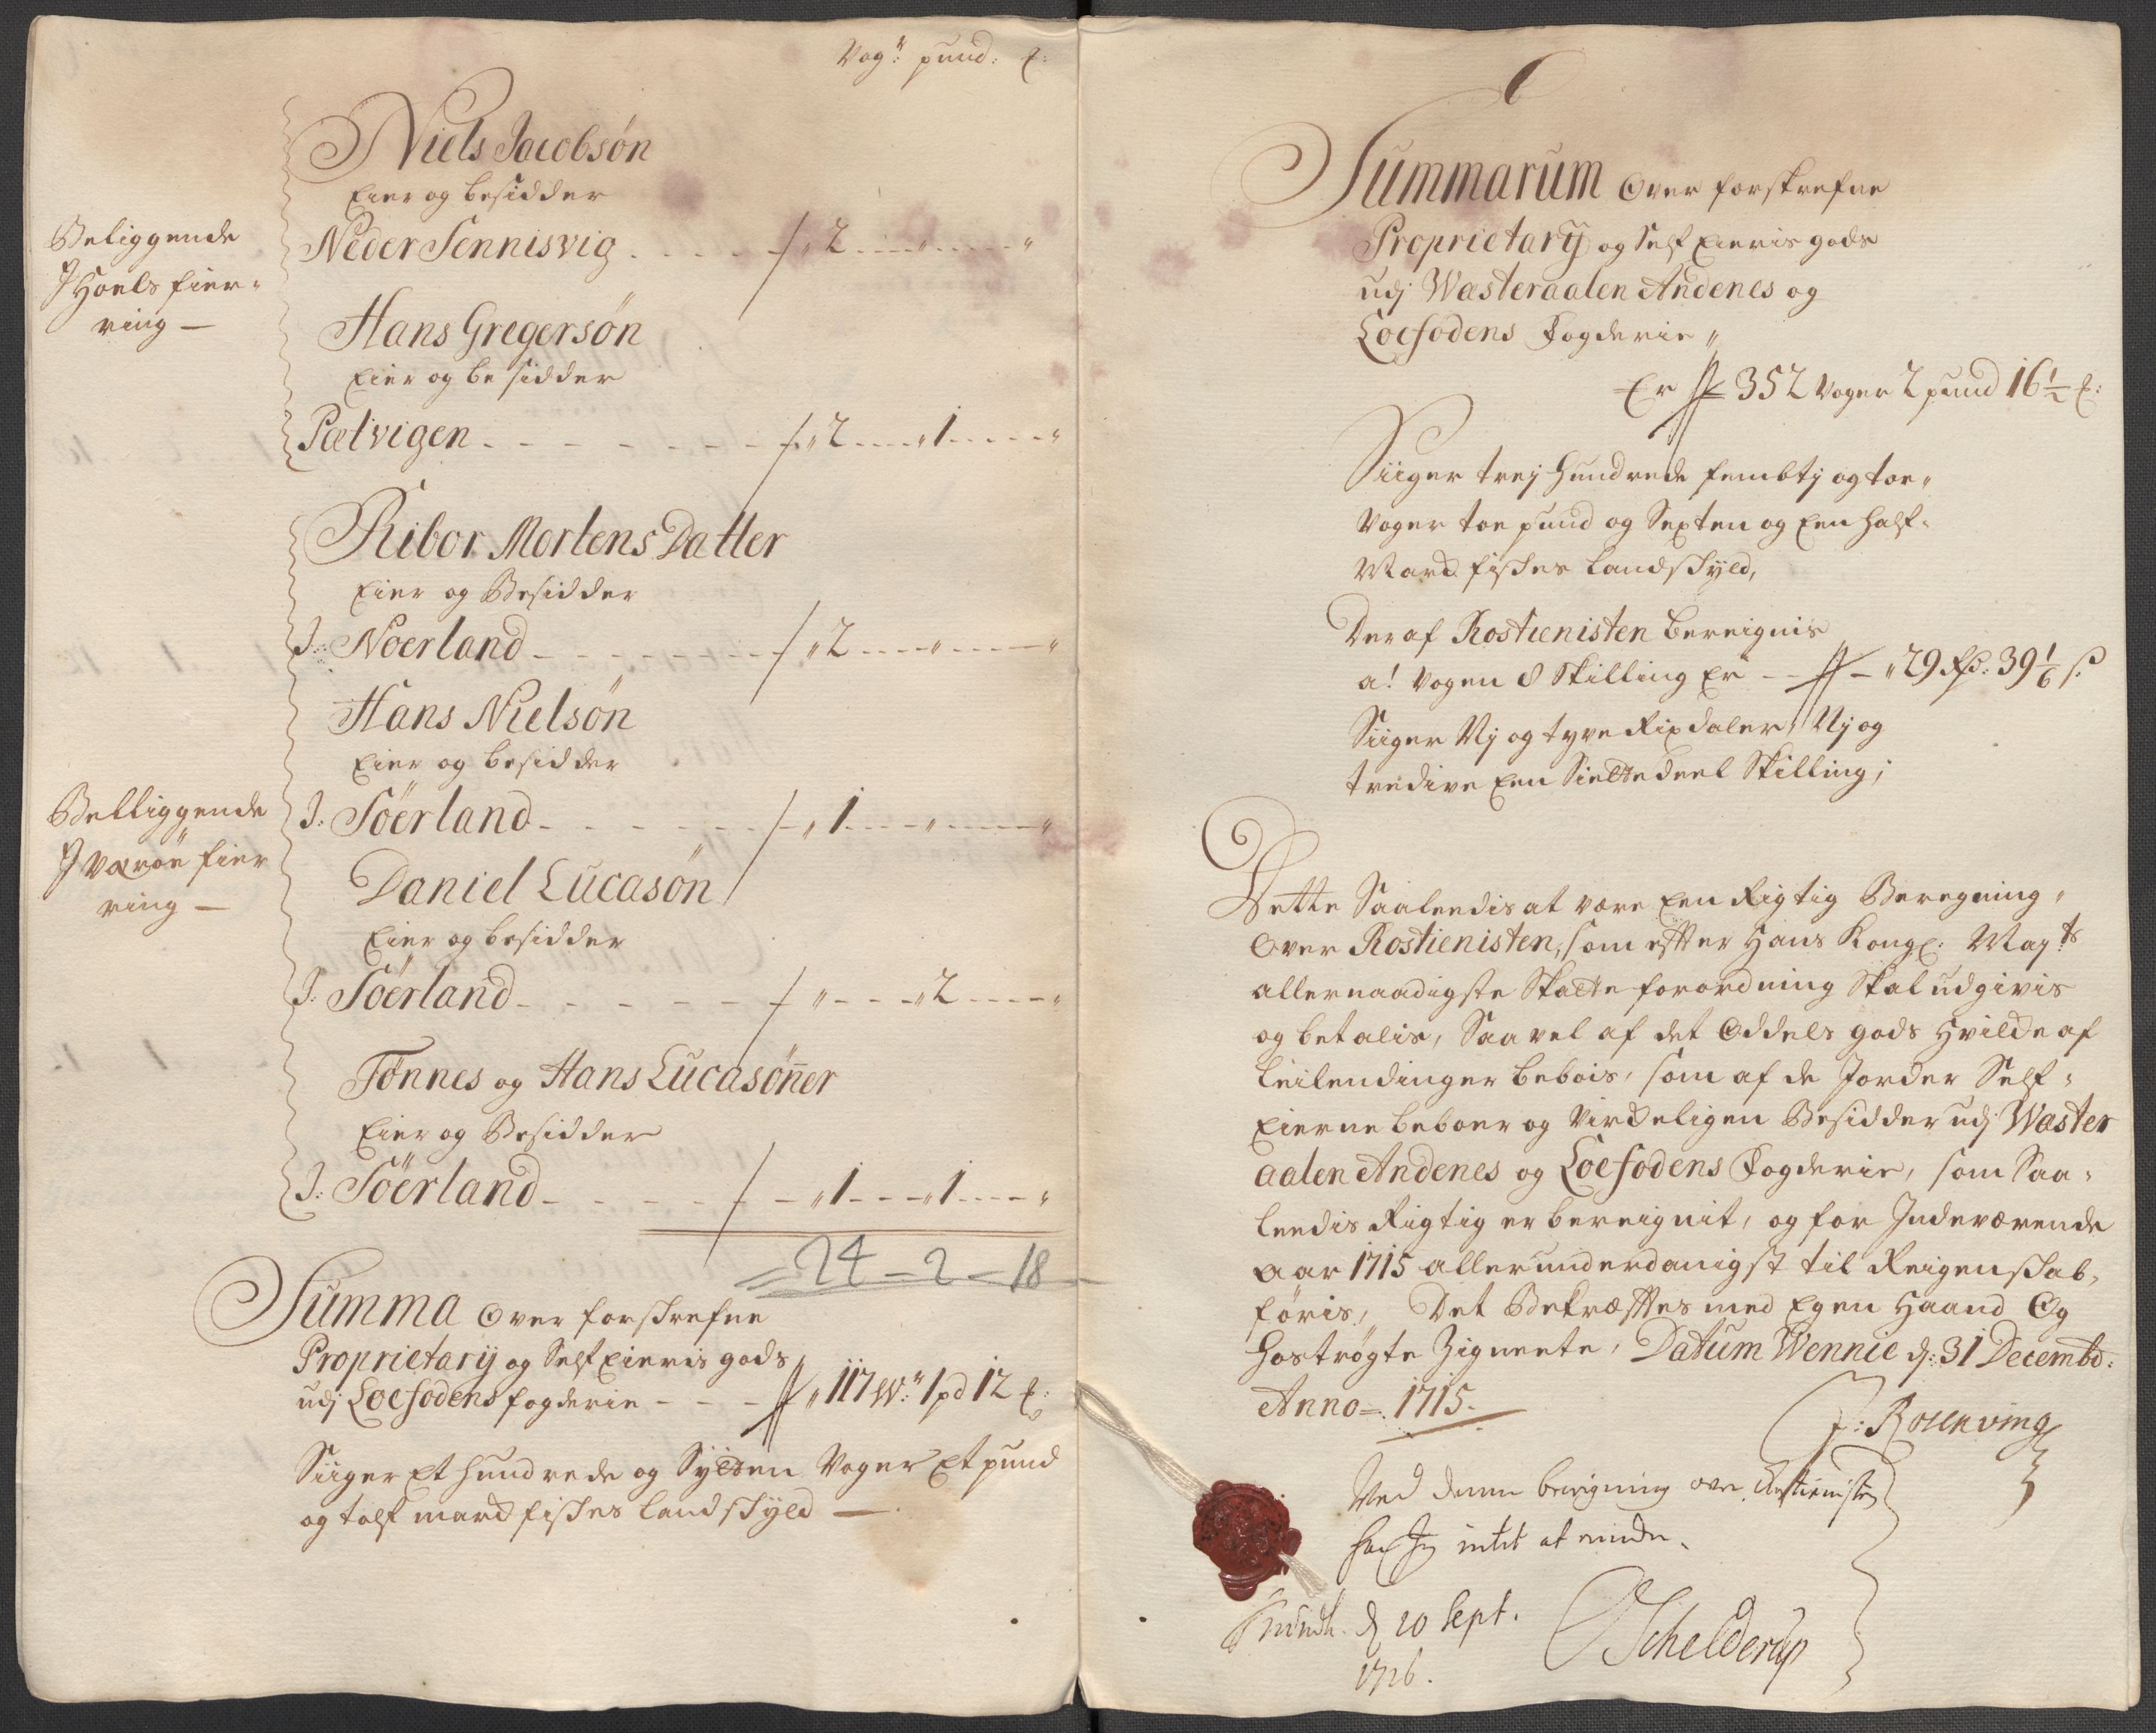 Vog:r pund: ℔:
Niels Jacobsøn
Eier og besidder
Beliggende
Neder Sennisvig . . . . . „ 2 . . . „ . . . „
J Hoels fier„
ring —
Hans Gregersøn
Eier og besidder
Pælvigen . . . . . „ 2 . . . „ 1 . . . „
Ribor Mortens Datter
Eier og Besidder
J: Noerland . . . . . „ 2 . . . „ . . . „
Hans Nielsøn
Eier og besidder
Belliggende
J: Söerland . . . . . „ 1 . . . „ . . . „
J Værøe fier
ring —
Daniel Lucasøn
Eier og besidder
J: Söerland . . . . . „ . . . „ 2 . . . „
Tönnes og Hans Lucasøn̄er
Eier og Besidder
J: Söerland . . . . . „ 1 . . . „ 1 . . . „
= 24 – 2 – 18
Summa Over forskrefne
Proprietarij og Self Eieris gods
udj Loefodens fogderie - - - „ 117 W:r 1 pd 12 ℔:
Siiger Et hundrede og Sÿtten Voger Et pund
og tolf mark fiskes landskyld —
Summarum Over forskrefne
Proprietarij og Self Eieris gods
udj Wæsteraalen Andenes og
Loefodens Fogderie „
Er 352 Voger 2 pund 16½ ℔:
Siiger trej hundrede fembtj og toe„
Voger toe pund og Sexten og Een half„
Mark fiskes landskyld,
Deraf Rostienisten bereignis
a! Vogen 8 Skilling Er - - „ 29 Rd: 39 1/6 s:
Siiger Nj og tyve Rixdaler, Nj og
tredive Een Siette deel Skilling;
Dette Saaleedis at være Een Rigtig Beregning„
Over Rostienisten, som efter Hans Kongl: May:ts
allernaadigste Skatte forordning Skal udgivis
og betalis, Saavel af det Oddels gods Hvilke af
Leilendinger bebois, som af de Jorder Self„
Eierne beboer og Virkeligen Besidder udj Wæster
aalen Andenes og Loefodens Fogderie, som Saa„
leedis Rigtig er bereignit, og for Indeværende
Aar 1715 allerunderdanigst til Reigenskab„
föris, Det Bekræftes med Egen Haand Og
hoströgte Zigneete, Datum Wennie d: 31 Decembr:
Anno = 1715.
J: Rosenving
Ved denne beregning over Rostienisten
har Jeg intet at minde.
Trundh. d 20 Sept.
1716.
Schelderup